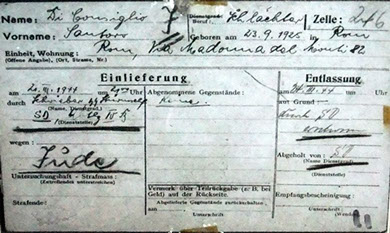 Name: Di Consiglio Dienstgrad: Beruf: Schlächter Zelle: 
Vorname: Santoro Geboren am 23.9.1925 in Rom
Einheit, Wohnung: Rom, Via Madonna dei Monti 82
(Offene Angabe), (Ort, Strasse, Nr.)
Einlieferung
Entlassung
am III.1944 um Uhr
Abgenommene Gegenstände:
am III.44 um Uhr
durch
Keine
auf Grund
(Name, Dienstgrad)
durch SD
SD
(Dienststelle)
wegen:
Abgeholt von: SD
Jude
(Name Dienstgrad)
Untersuchungshaft - Strafmass:
(Dienststelle)
(Zutreffendes unterstreichen)
Vermerk über Teilrückgabe (z. B. bei Geld) auf der Rückseite.
Empfangsbescheinigung
Strafende:
Abgelieferte Gegenstände zurückerhalten
am
Unterschrift
(Unterschrift)